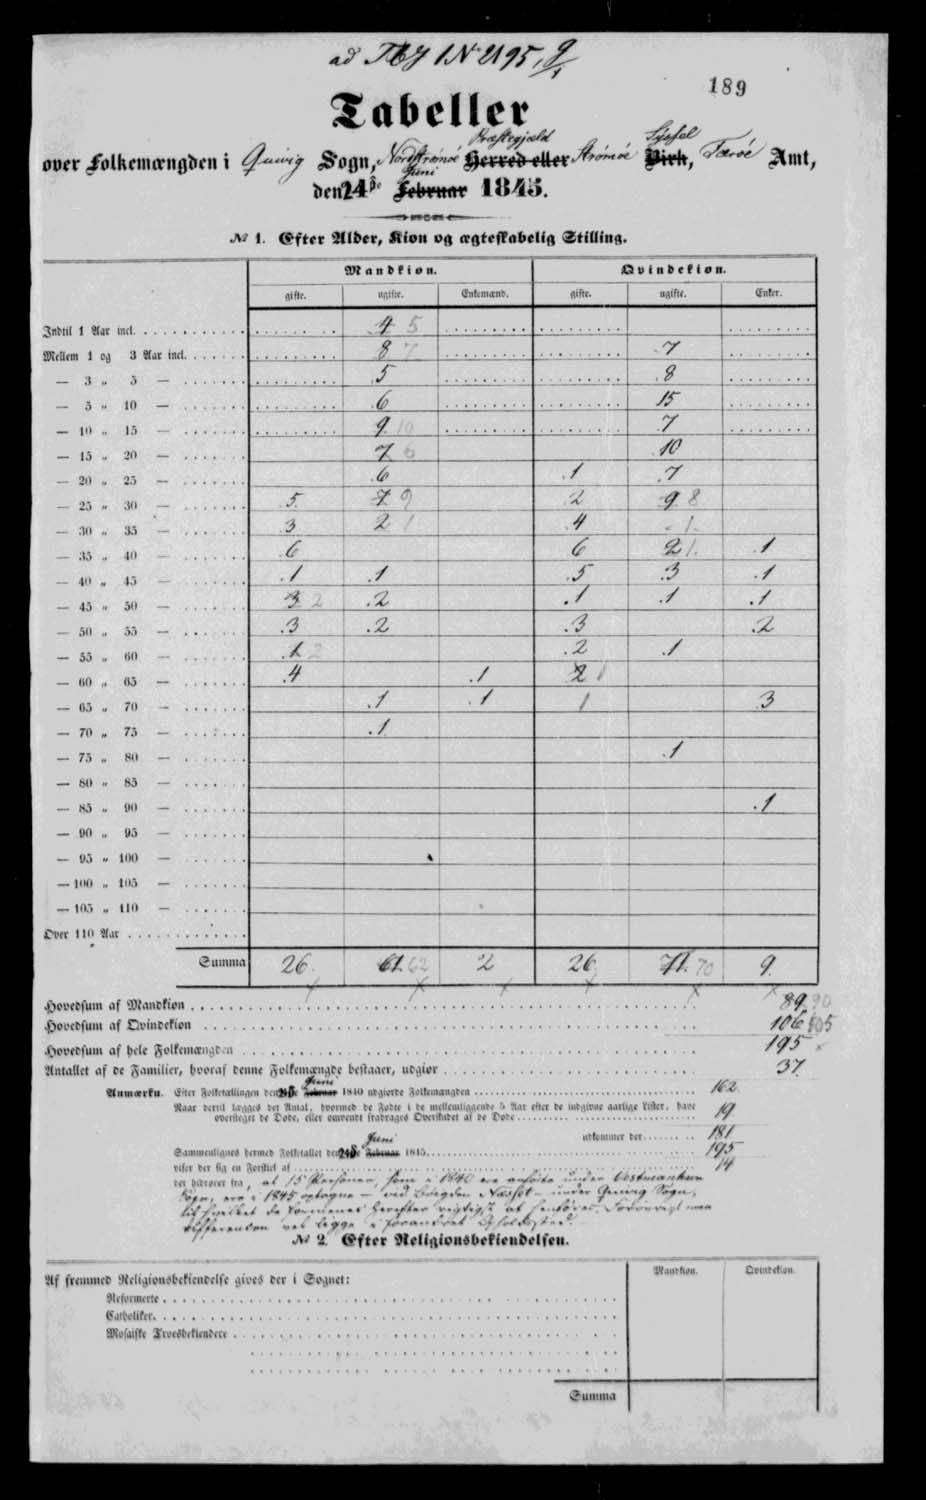 ad Tby 1 № 2195, 9/1
189
Tabeller
Præstegjæld Syssel
over Folkemængden i Quivig Sogn, Nordstrømöe Herred eller Strömöe Birk, Færöe Amt,
Juni
den 24de Februar 1845.
№ 1. Efter Alder, Kion og ægteskabelig Stilling.
Mandkion. Qvindekion.
gifte. ugifte. Enkemænd. gifte. ugifte. Enker.
Indtil 1 Aar incl. 4 5
Mellem 1 og 3 Aar incl. 8 7 7
— 3 „ 5 — 5 8
— 5 „ 10 — 6 15
— 10 „ 15 — 9 10 7
— 15 „ 20 — 7 6 10
— 20 „ 25 — 6 1 7
— 25 „ 30 — 5 7 9 2 9 8
— 30 „ 35 — 3 2 1 4 1
— 35 „ 40 — 6 6 2 1 1
— 40 „ 45 — 1 1 5 3 1
— 45 „ 50 — 3 2 2 1 1 1
— 50 „ 55 — 3 2 3 2
— 55 „ 60 — 1 2 2 1
— 60 „ 65 — 4 1 2 1
— 65 „ 70 — 1 1 1 3
— 70 „ 75 — 1
— 75 „ 80 — 1
— 80 „ 85 —
— 85 „ 90 — 1
— 90 „ 95 —
— 95 „ 100 —
— 100 „ 105 —
— 105 „ 110 —
Over 110 Aar
Summa 26. 61. 62 2 26 71. 70 9.
Hovedsum af Mandkion 89 90
Hovedsum af Qvindekion 106 105
Hovedsum af hele Folkemængden 195
Antallet af de Familier, hvoraf denne Folkemængde bestaaer, udgiør 37.
Juni
Anmærkn. Efter Folketællingen den Februar 1840 udgiorde Folkemængden 162
Naar dertil lægges det Antal, hvormed de Fødte i de mellemliggende 5 Aar efter de indgivne aarlige Lister, have
oversteget de Døde, eller omvendt fradrages Overskudet af de Døde 19
udkommer der 181
Juni
Sammenlignes hermed Folketallet den 24de Februar 1845 195
viser der sig en Forskiel af 14
der hidrører fra, at 15 Personer, som i 1840 ere anførte under Vestmanhavn
Sogn, ere i 1845 optagne — ved Bøigden Næsset — under Quivig Sogn,
til hvilket de formenes herefter rigtigst at henføres. Forøvrigt maa
differencen vel ligge i forandret Opholdssted.
№ 2. Efter Religionsbekiendelsen.
Mandkion. Qvindekion.
Af fremmed Religionsbekiendelse gives der i Sognet:
Reformerte
Catholiker
Mosaiske Troesbekiendere
Summa